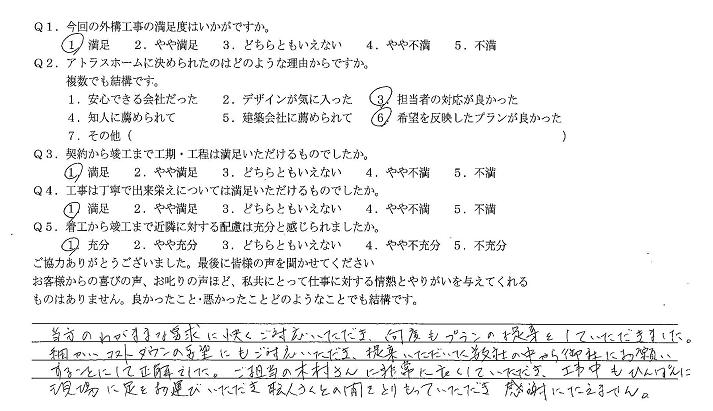 Q1．今回の外構工事の満足度はいかがですか。
1 満足　2．やや満足　3．どちらともいえない　4．やや不満　5．不満
Q2．アトラスホームに決められたのはどのような理由からですか。
複数でも結構です。
1．安心できる会社だった　2．デザインが気に入った　3．担当者の対応が良かった
4．知人に薦められて　5．建築会社に薦められて　6．希望を反映したプランが良かった
7．その他（　　　）
Q3．契約から竣工まで工期・工程は満足いただけるものでしたか。
1 満足　2．やや満足　3．どちらともいえない　4．やや不満　5．不満
Q4．工事は丁寧で出来栄えについては満足いただけるものでしたか。
1 満足　2．やや満足　3．どちらともいえない　4．やや不満　5．不満
Q5．着工から竣工まで近隣に対する配慮は充分と感じられましたか。
1 充分　2．やや充分　3．どちらともいえない　4．やや不充分　5．不充分
ご協力ありがとうございました。最後に皆様の声を聞かせてください
お客様からの喜びの声、お叱りの声ほど、私共にとって仕事に対する情熱とやりがいを与えてくれる
ものはありません。良かったこと・悪かったことどのようなことでも結構です。
当方のわがままな要求に快くご対応いただき、何度もプランの提案をしていただきました。
細かいコストダウンの希望にもご対応いただき、提案いただいた数社の中から御社にお願い
することにして正解でした。ご担当の木村さんに非常に良くしていただき、工事中もひんぱんに
現場に足をお運びいただき職人さんとの間をとりもっていただき 感謝にたえません。